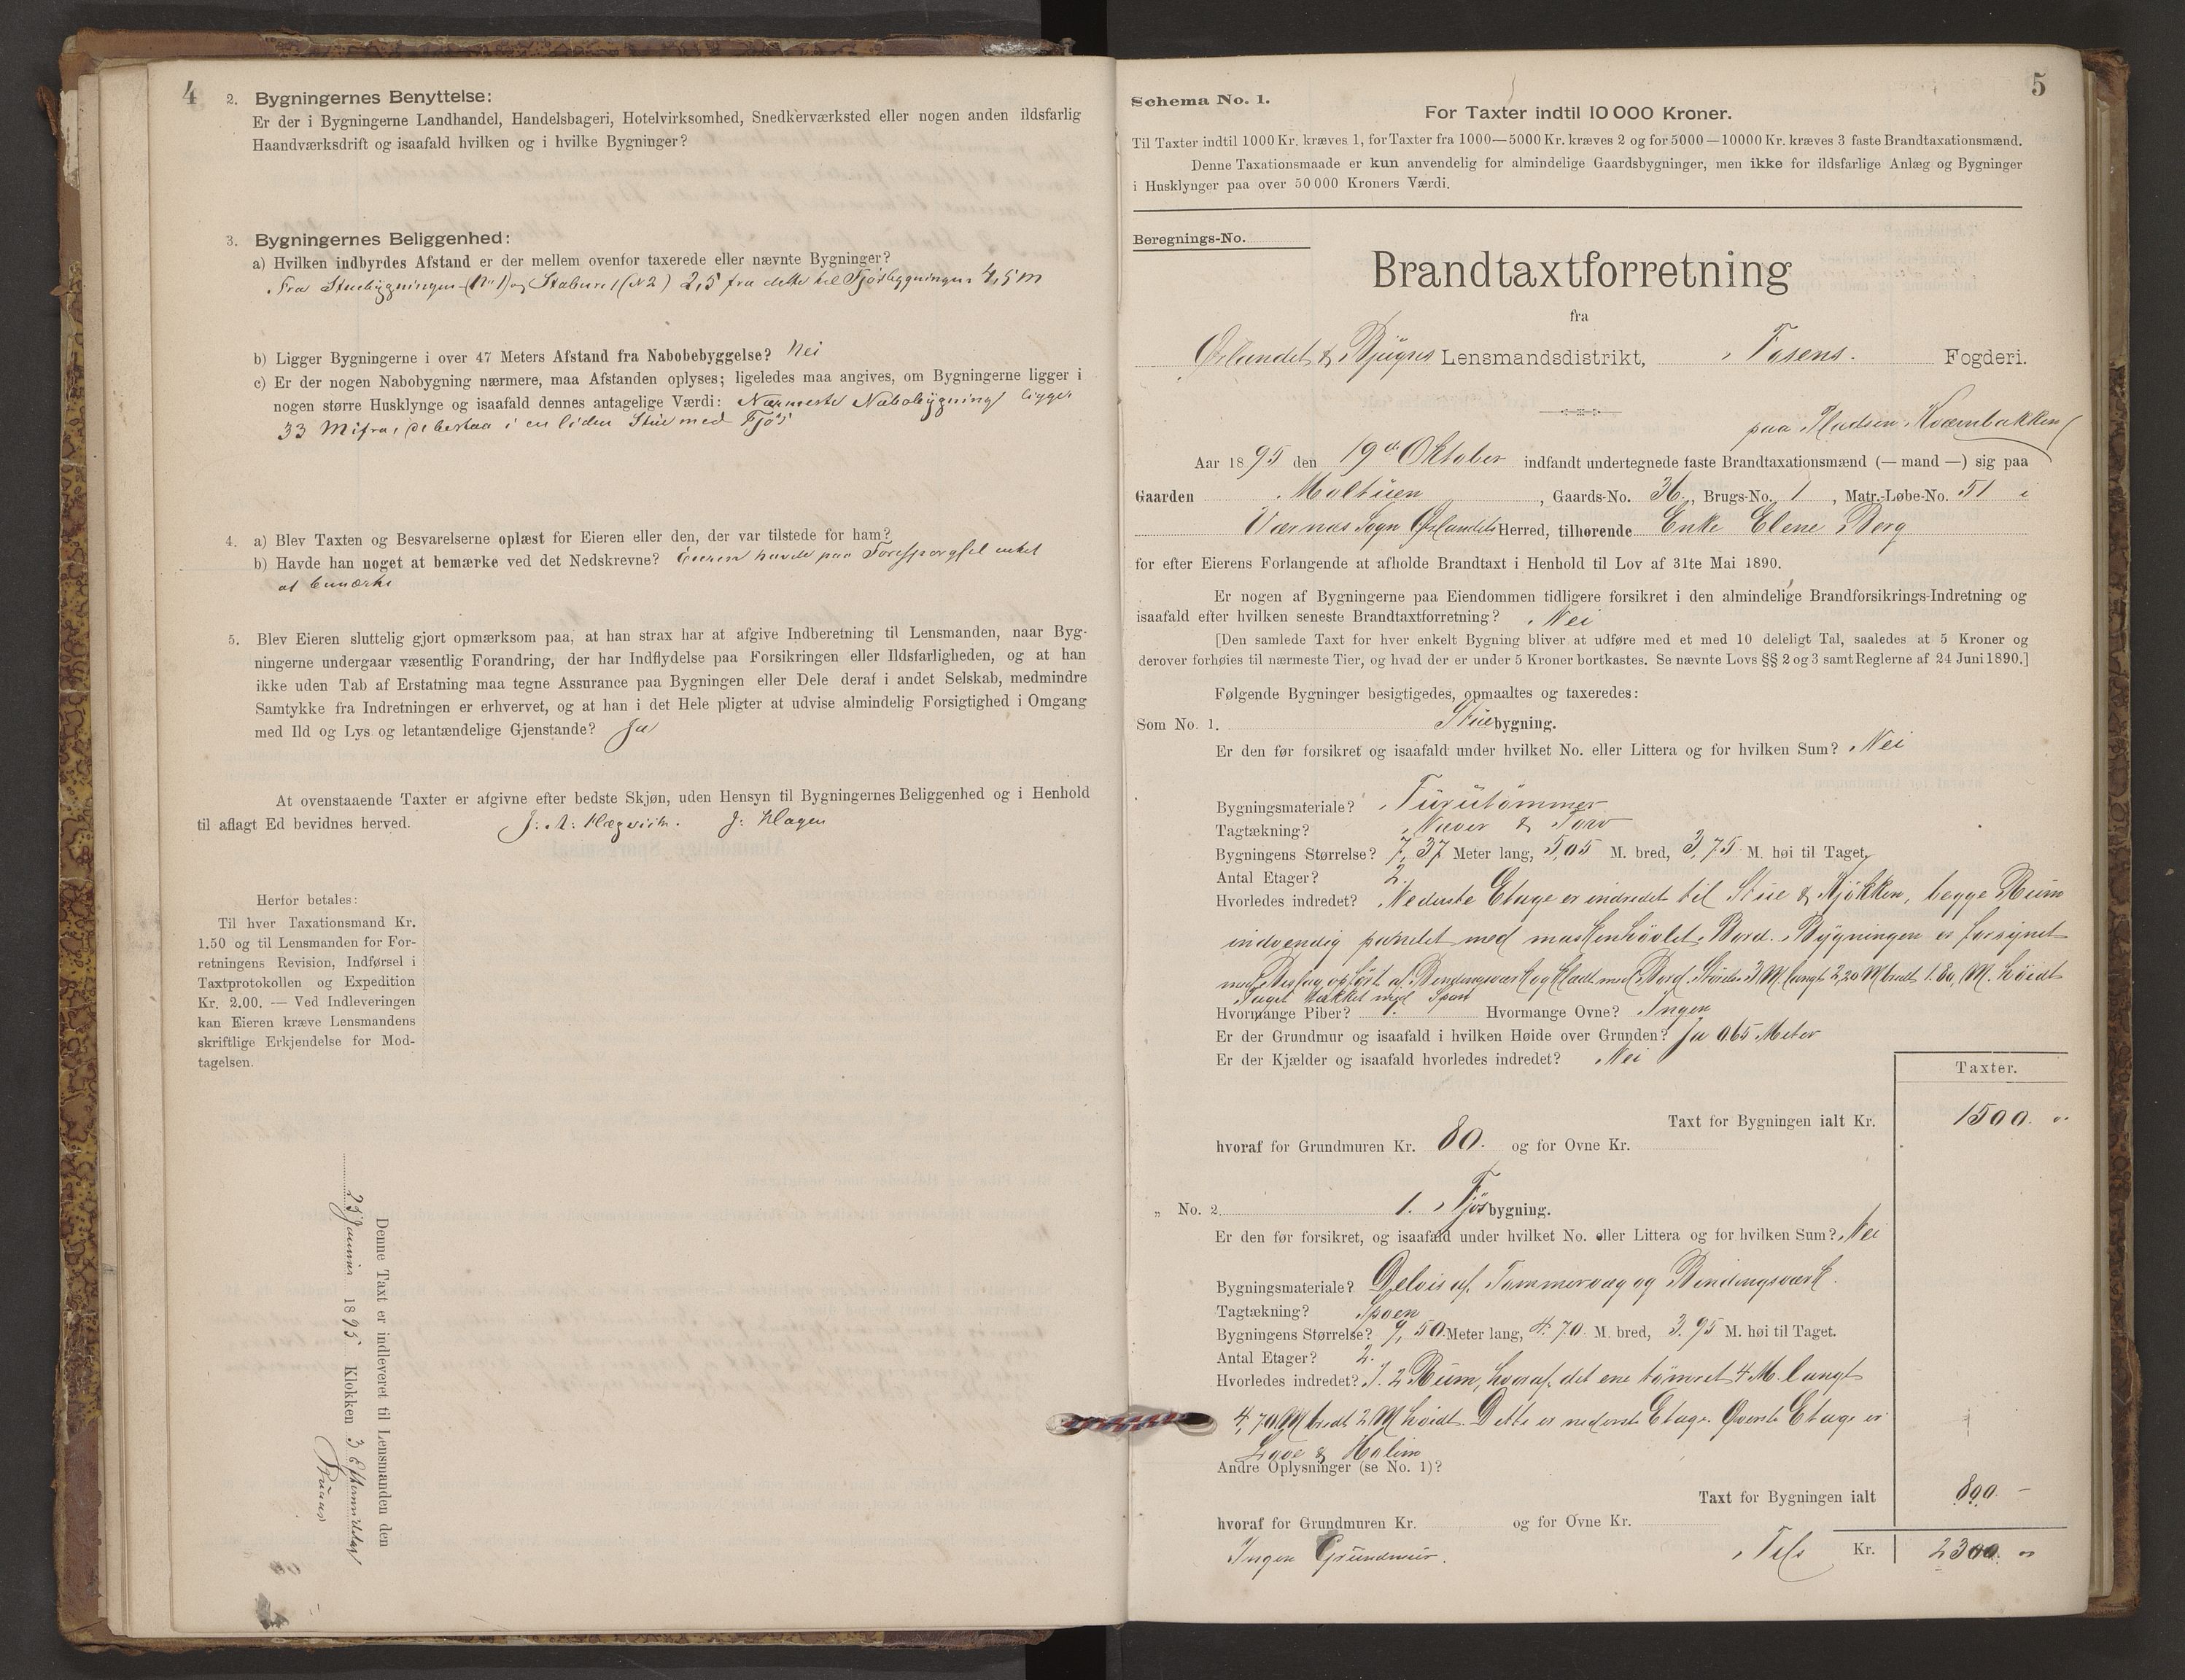 4
2. Bygningernes Benyttelse:
Er der i Bygningerne Landhandel, Handelsbageri, Hotelvirksomhed, Snedkerværksted eller nogen anden ildsfarlig
Haandværksdrift og isaafald hvilken og i hvilke Bygninger?
3. Bygningernes Beliggenhed:
a) Hvilken indbyrdes Afstand er der mellem ovenfor taxerede eller nævnte Bygninger?
Fra Stuebygningen (No 1) og Staburet (N 2) 2,5 fra dette til Fjøsbygningen 4,5 m
b) Ligger Bygningerne i over 47 Meters Afstand fra Nabobebyggelse? Nei
c) Er der nogen Nabobygning nærmere, maa Afstanden oplyses; ligeledes maa angives, om Bygningerne ligger i
nogen større Husklynge og isaafald dennes antagelige Værdi: Nærmeste Nabobygning ligger
33 M ifra, bestaa i en liden Stue med Fjøs
4. a) Blev Taxten og Besvarelserne oplæst for Eieren eller den, der var tilstede for ham?
b) Havde han noget at bemærke ved det Nedskrevne? Eieren havde paa Forespørgsel intet
at bemærke
5. Blev Eieren sluttelig gjort opmærksom paa, at han strax har at afgive Indberetning til Lensmanden, naar Byg-
ningerne undergaar væsentlig Forandring, der har Indflydelse paa Forsikringen eller Ildsfarligheden, og at han
ikke uden Tab af Erstatning maa tegne Assurance paa Bygningen eller Dele deraf i andet Selskab, medmindre
Samtykke fra Indretningen er erhvervet, og at han i det Hele pligter at udvise almindelig Forsigtighed i Omgang
med Ild og Lys og letantændelige Gjenstande? Ja
At ovenstaaende Taxter er afgivne efter bedste Skjøn, uden Hensyn til Bygningernes Beliggenhed og i Henhold
til aflagt Ed bevidnes herved. J. A. Hægvik. J. Hagen
Herfor betales:
Til hver Taxationsmand Kr.
1.50 og til Lensmanden for For-
retningens Revision, Indførsel i
Taxtprotokollen og Expedition
Kr. 2.00. — Ved Indleveringen
kan Eieren kræve Lensmandens
skriftlige Erkjendelse for Mod-
tagelsen.
Denne Taxt er indleveret til Lensmanden den
25 Januar 1895 Klokken 3 Eftermiddag
5
Schema No. 1.
For Taxter indtil 10 000 Kroner.
Til Taxter indtil 1000 Kr. kræves 1, for Taxter fra 1000—5000 Kr. kræves 2 og for 5000—10000 Kr. kræves 3 faste Brandtaxationsmænd.
Denne Taxationsmaade er kun anvendelig for almindelige Gaardsbygninger, men ikke for ildsfarlige Anlæg og Bygninger
i Husklynger paa over 50 000 Kroners Værdi.
Beregnings-No.
Brandtaxtforretning
fra
Ørlandet & Bjugns Lensmandsdistrikt, Fosens. Fogderi.
paa Pladsen Kværnbakken
Aar 1895 den 19de Oktober indfandt undertegnede faste Brandtaxationsmænd (— mand —) sig paa
Gaarden Moltuen, Gaards-No. 36., Brugs-No. 1, Matr.-Løbe-No. 51 i
Værnas Sogn Ørlandets Herred, tilhørende Enke Elene Berg
for efter Eierens Forlangende at afholde Brandtaxt i Henhold til Lov af 31te Mai 1890.
Er nogen af Bygningerne paa Eiendommen tidligere forsikret i den almindelige Brandforsikrings-Indretning og
isaafald efter hvilken seneste Brandtaxtforretning? Nei
[Den samlede Taxt for hver enkelt Bygning bliver at udføre med et med 10 deleligt Tal, saaledes at 5 Kroner og
derover forhøies til nærmeste Tier, og hvad der er under 5 Kroner bortkastes. Se nævnte Lovs §§ 2 og 3 samt Reglerne af 24 Juni 1890.]
Følgende Bygninger besigtigedes, opmaaltes og taxeredes:
Som No. 1. Stuebygning.
Er den før forsikret og isaafald under hvilket No. eller Littera og for hvilken Sum? Nei
Bygningsmateriale? Furutømmer
Tagtækning? Næver & Torv
Bygningens Størrelse? 7,37 Meter lang, 5,05 M. bred, 3,75 M. høi til Taget.
Antal Etager? 2.
Hvorledes indredet? Nederste Etage er indredet til Stue & Kjøkken, begge Rum
indvendig panelet med maskinhøvlet Bord. Bygningen er forsynet
med Bislag opført af Bindingsværk og klædt med Bord. Størrelse 3 M. langt 2,20 M bredt 1.80, M. høidt
Taget tækket med Spon
Hvormange Piber? 1. Hvormange Ovne? Ingen
Er der Grundmur og isaafald i hvilken Høide over Grunden? Ja 0,65 Meter
Er der Kjælder og isaafald hvorledes indredet? Nei
Taxter.
Taxt for Bygningen ialt Kr. 1500.
hvoraf for Grundmuren Kr. 80. og for Ovne Kr.
„ No. 2. 1. Fjøsbygning.
Er den før forsikret, og isaafald under hvilket No. eller Littera og for hvilken Sum? Nei
Bygningsmateriale? Delvis af Tømmervæg og Bindingsværk.
Tagtækning? Spoen
Bygningens Størrelse? 9,50 Meter lang, 4.70 M. bred, 3.95 M. høi til Taget.
Antal Etager? 2.
Hvorledes indredet? I 2 Rum, hvoraf det ene tømret 4 M. langt
4,70 M bredt 2 M høidt. Dette er nederste Etage. Øverste Etage er
Love & Halm
Andre Oplysninger (se No. 1)?
Taxt for Bygningen ialt 800. —
hvoraf for Grundmuren Kr. og for Ovne Kr.
Ingen Grundmur. Tils Kr. 2300